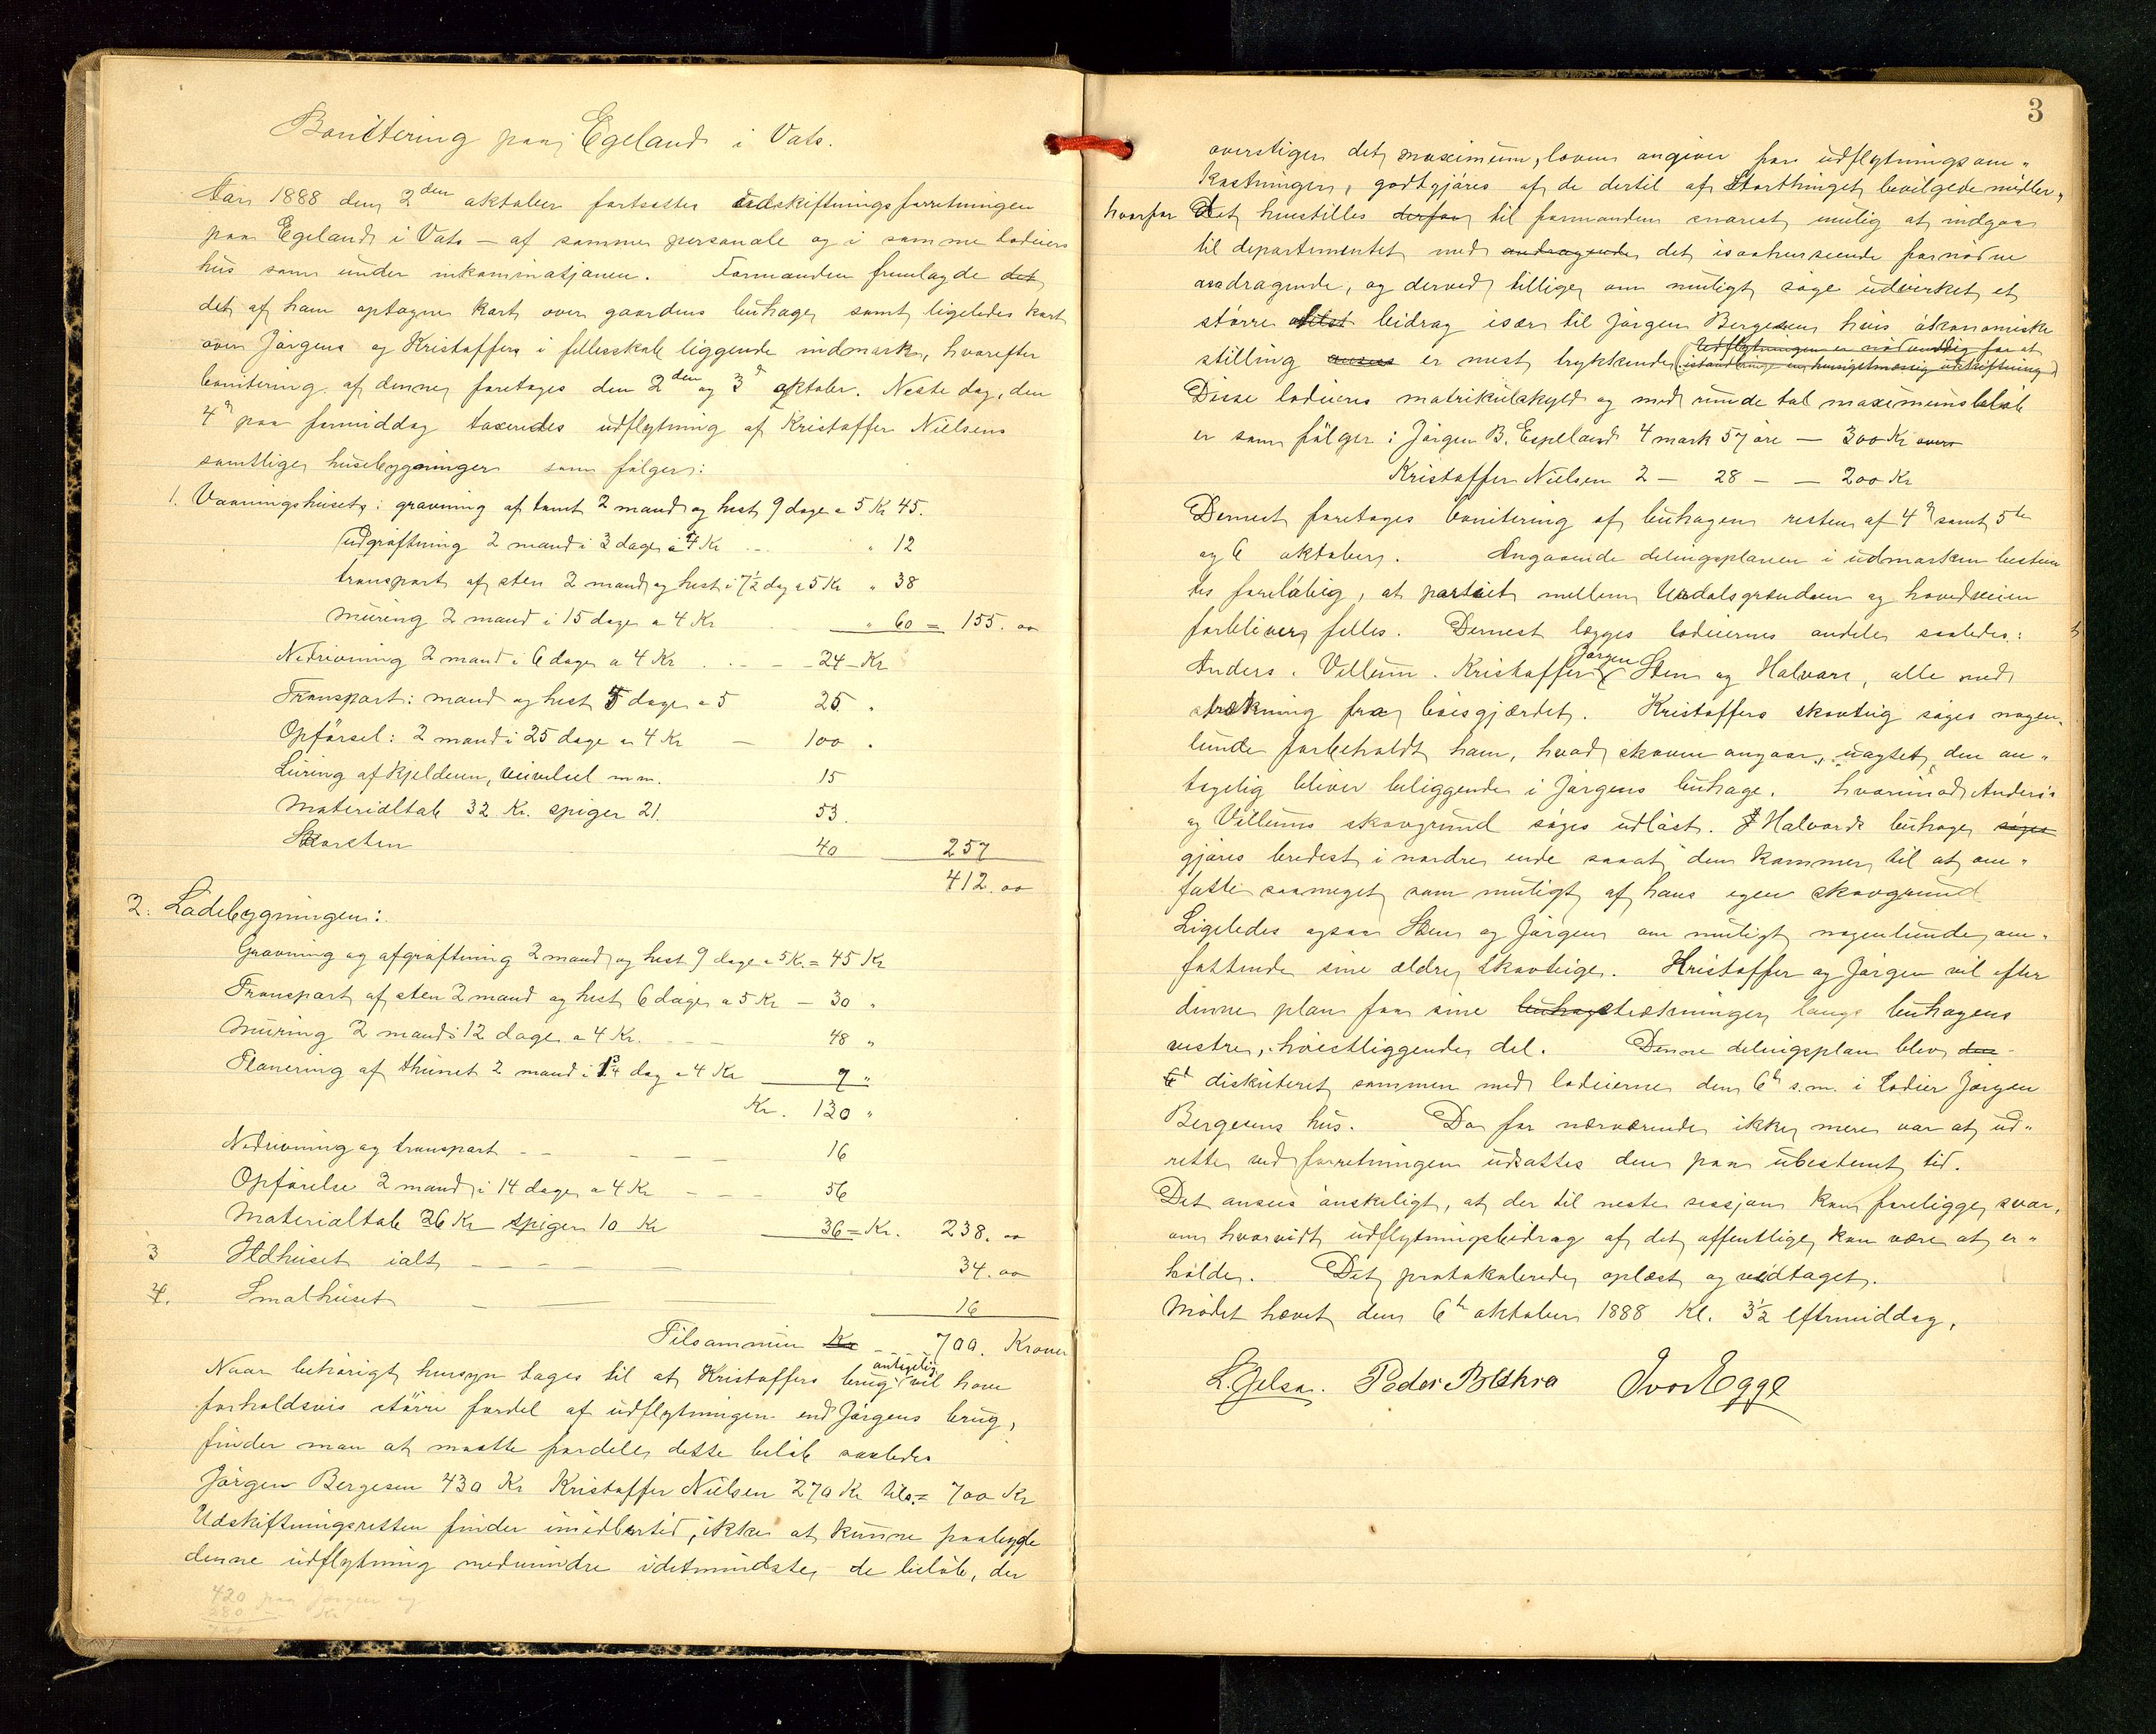 Bonitering paa Egeland i Vats.
Aar 1888 den 2den oktober fortsattes udskiftningsforretningen
paa Egeland i Vats – af samme personale og i samme lodeiers
hus som under inkaminasjonen. Formanden fremlagde det
det af ham optagne kart over gaardens buhage samt ligeledes kart
over Jörgens og Kristoffers i fellesskab liggende indmark, hvorefter
bonitering af denne foretages den 2den og 3d oktober. Neste dag, den
4d paa formiddag taxeredes udflytning af Kristoffer Nielsens
samtlige husebygninger som fölger:
1. Vaaningshuset: gravning af tomt 2 mand og hest 9 dage a 5 Kr 45.
udgröftning 2 mand i 3 dage à 4 Kr ... " 12
transport af sten 2 mand og hest i 7½ dag a 5 Kr " 38
Muring 2 mand i 15 dage a 4 Kr " 60 = 155. oo
Nedrivning 2 mand i 6 dage a 4 Kr . . – – 24 – Kr
Transport: mand og hest 5 dage a 5 25 "
Opförsel: 2 mand i 25 dage a 4 Kr – 100 "
Luring af kjelderen, mm. 15
Materialtab 32 Kr. spiger 21. 53.
Skorsten 40 257
412. oo
2. Ladebygningen:
Gravning og afgröftning 2 mand og hest 9 dage a 5 Kr. = 45 Kr
Transport af sten 2 mand og hest 6 dage a 5 Kr – 30 "
Muring 2 mand i 12 dage a 4 Kr. – – – 48 "
Planering af thunet 2 mand i 1¾ dag a 4 Kr 7 "
Kr. 130 "
Nedrivning og transport – – – – – 16
Opförelse 2 mand i 14 dage a 4 Kr – – – 56
Materialtab 26 Kr spiger 10 Kr 36 = Kr. 238. oo
3 Ildhuset ialt – – – – – 34. oo
4. Smalhuset – – – 16
Tilsammen Kr – – 700. Kroner
Naar behörigt hensyn tages til at Kristoffers brug antagelig vil have
forholdsvis större fordel af udflytningen end Jörgens brug,
finder man at maatte fordele dette belöb saaledes
Jörgen Bergesen 430 Kr Kristoffer Nielsen 270 Kr tils. = 700 Kr
Udskiftningsretten finder imidlertid, ikke at kunne paabyde
denne udflytning medmindre idetmindste de belöb, der
420 paa Jörgen og
280 – Kr
700
3
overstiger det maximum, loven angiver for udflytningsom„
kostninger, godtgjöres af de dertil af Storthinget bevilgede midler,
hvorfor Det henstilles derfor til formanden snarest mulig at indgaa
til departementet med andragende det isaahenseende fornödne
andragende, og derved tillige om muligt söge udvirket et
större bidrag især til Jörgen Bergesen hvis ökonomiske
stilling ansees er mest trykkende (Udflytningen er nödvendig for at
istandbringe en hensigtmæssig udskiftning)
Disse lodeieres matrikulskyld og med runde tal maximumsbelöb
er som fölger: Jörgen B. Espeland 4 mark 57 öre – 300 Kr
Kristoffer Nielsen 2 – 28 – – 200 Kr
Dernest foretages bonitering af buhagen resten af 4d samt 5te
og 6 oktober. Angaaende delingsplanen i udmarken bestem
tes forelöbig, at partiet mellem Undalsgrenden og hovedveien
forbliver felles. Dernest lægges lodeiernes andele saaledes:
Anders. Vellum. Kristoffer Jörgen Sten og Halvor, alle med
strekning fra böisgjærdet. Kristoffers skovteig söges nogen„
lunde forbeholdt ham, hvad skoven angaar, uagtet den an„
tagelig bliver beliggende i Jörgens buhage. hvorimod Anders's
og Vellums skovgrund söges udlöst. Halvords buhage söges
gjöres bredest i nordre ende saaat den kommer til at om„
fatte saameget som muligt af hans egen skovgrund
Ligeledes ogsaa Sten og Jörgen om muligt nogenlunde om„
fattende sine ældre skovteiger. Kristoffer og Jörgen vil efter
denne plan faa sine buhagestrekninger langs buhagens
vestre, höiestliggende del. Denne delingsplan blev den
6t diskuteret sammen med lodeierne den 6te s.m. i lodeier Jörgen
Bergesens hus. Da for nærværende ikke mere var at ud„
rette ved forretningen udsattes den paa ubestemt tid.
Det ansees önskeligt, at der til neste sessjon kan foreligge svar,
om hvorvidt udflytningsbidrag af det offentlige kan være at er„
holde. Det protokolerede oplæst og vedtaget.
Mödet hævet den 6te oktober 1888 Kl. 3½ eftermiddag.
L. Jelsa. Peder Ivar Egge